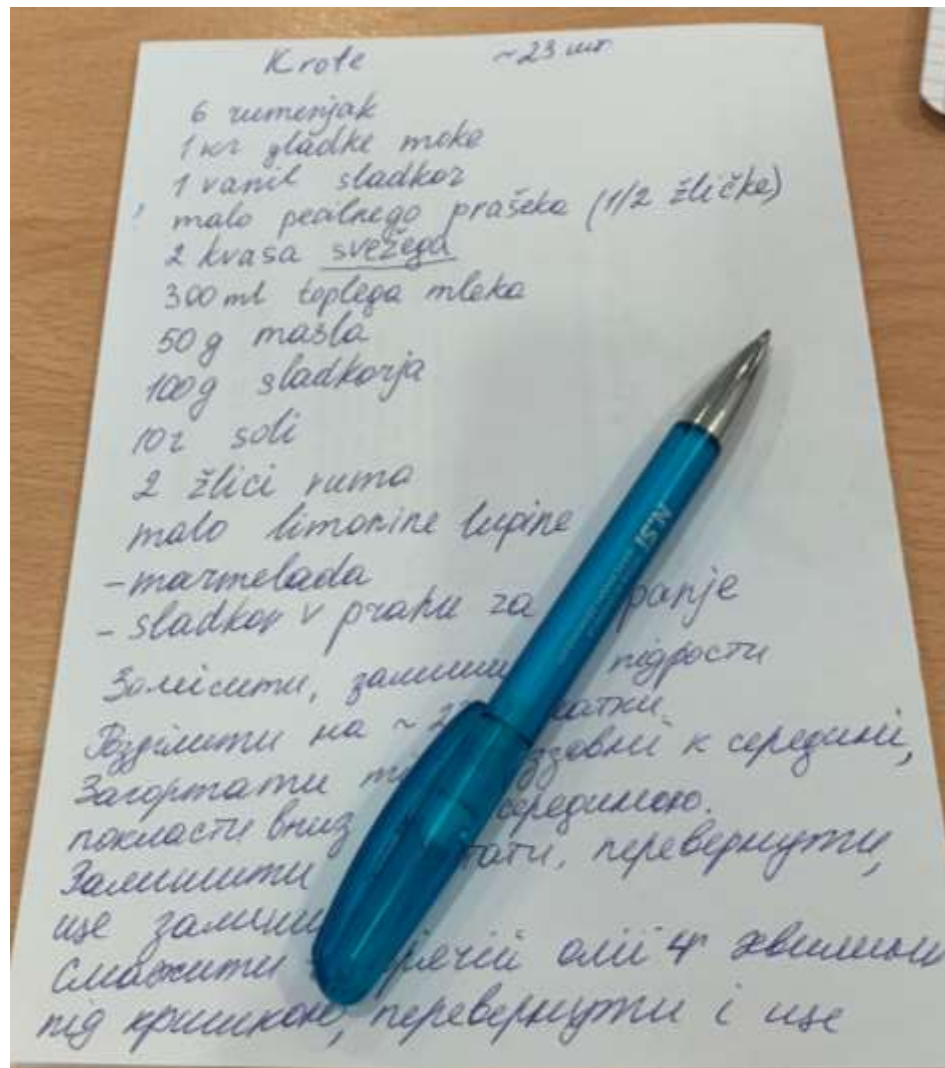 Krofe ~23 шт
6 rumenjak
1 кг gladke moke
1 vanil sladkor
malo pecilnego prašeka (1/2 žličke)
2 kvasa svežega
300 ml toplega mleka
50 g masla
100g sladkorja
10г soli
2 žlici ruma
malo limonine lupine
- marmelada
- sladkor v prahu za
Замісити, підрости
Розділити на ~
Загортати к середині,
покласти вниз серединою.
Залишити перевернути,
ще
Смажити олії 4 хвилини
під кришкою, перевернути і ще
N.SI